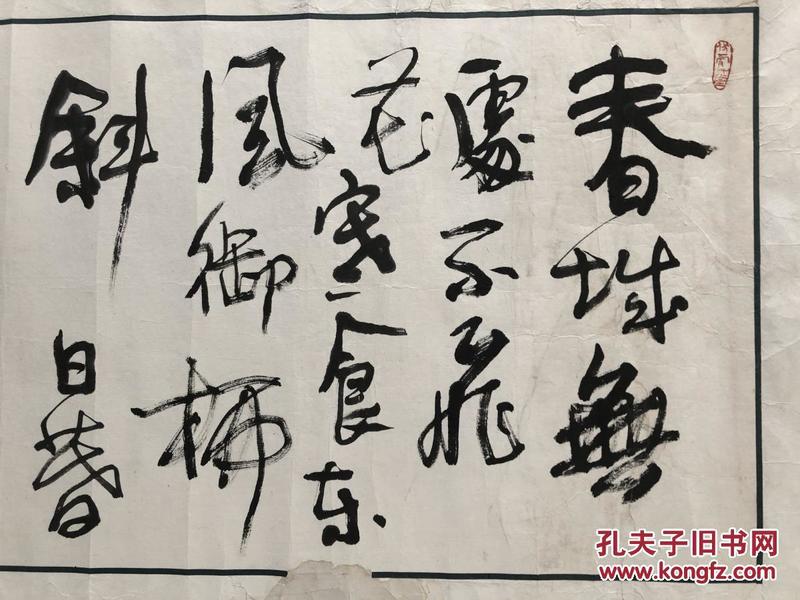 春城無
處不飛
花寒食東
風御柳
斜 日暮
孔夫子旧书网
www.kongfz.com